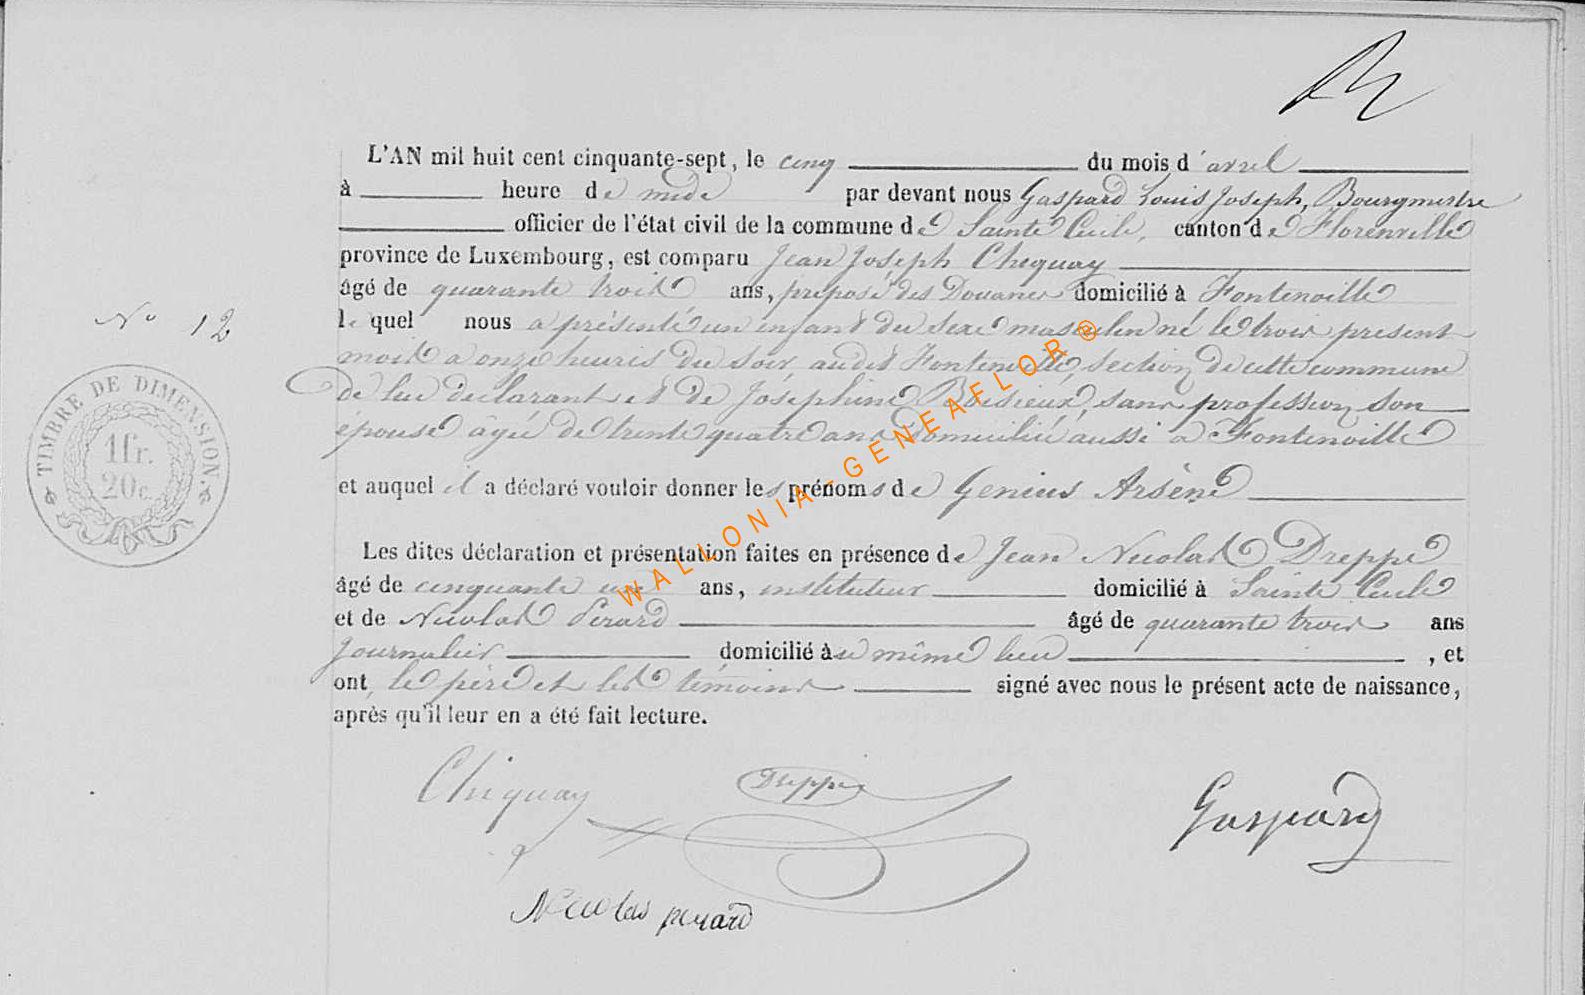 L'AN mil huit cent cinquante-sept, le cinq du mois d'avril
à heure de midi par devant nous Gaspard Louis Joseph, Bourgmestre
officier de l'état civil de la commune de Sainte Cécile, canton de Florenville
province de Luxembourg, est comparu Jean Joseph Chiquay
âgé de quarante trois ans, préposé des Douanes domicilié à Fontenoille
lequel nous a présenté un enfant du sexe masculin né le trois présent
mois à onze heures du soir, audit Fontenoille, section de cette commune
de lui déclarant et de Joséphine Boisieux, sans profession son
épouse âgée de trente quatre ans domiciliée aussi à Fontenoille
et auquel il a déclaré vouloir donner les prénoms de Genius Arsène
Les dites déclaration et présentation faites en présence de Jean Nicolas Dreppe
âgé de cinquante un ans, instituteur domicilié à Sainte Cécile
et de Nicolas Pérard âgé de quarante trois ans
journalier domicilié à ce même lieu, et
ont, le père et les témoins signé avec nous le présent acte de naissance,
après qu'il leur en a été fait lecture.
N° 12
TIMBRE DE DIMENSION.
1 fr.
20 c.
WALLONIA-GENEAFLOR®
Chiquay Dreppe Gaspard
Nicolas perard